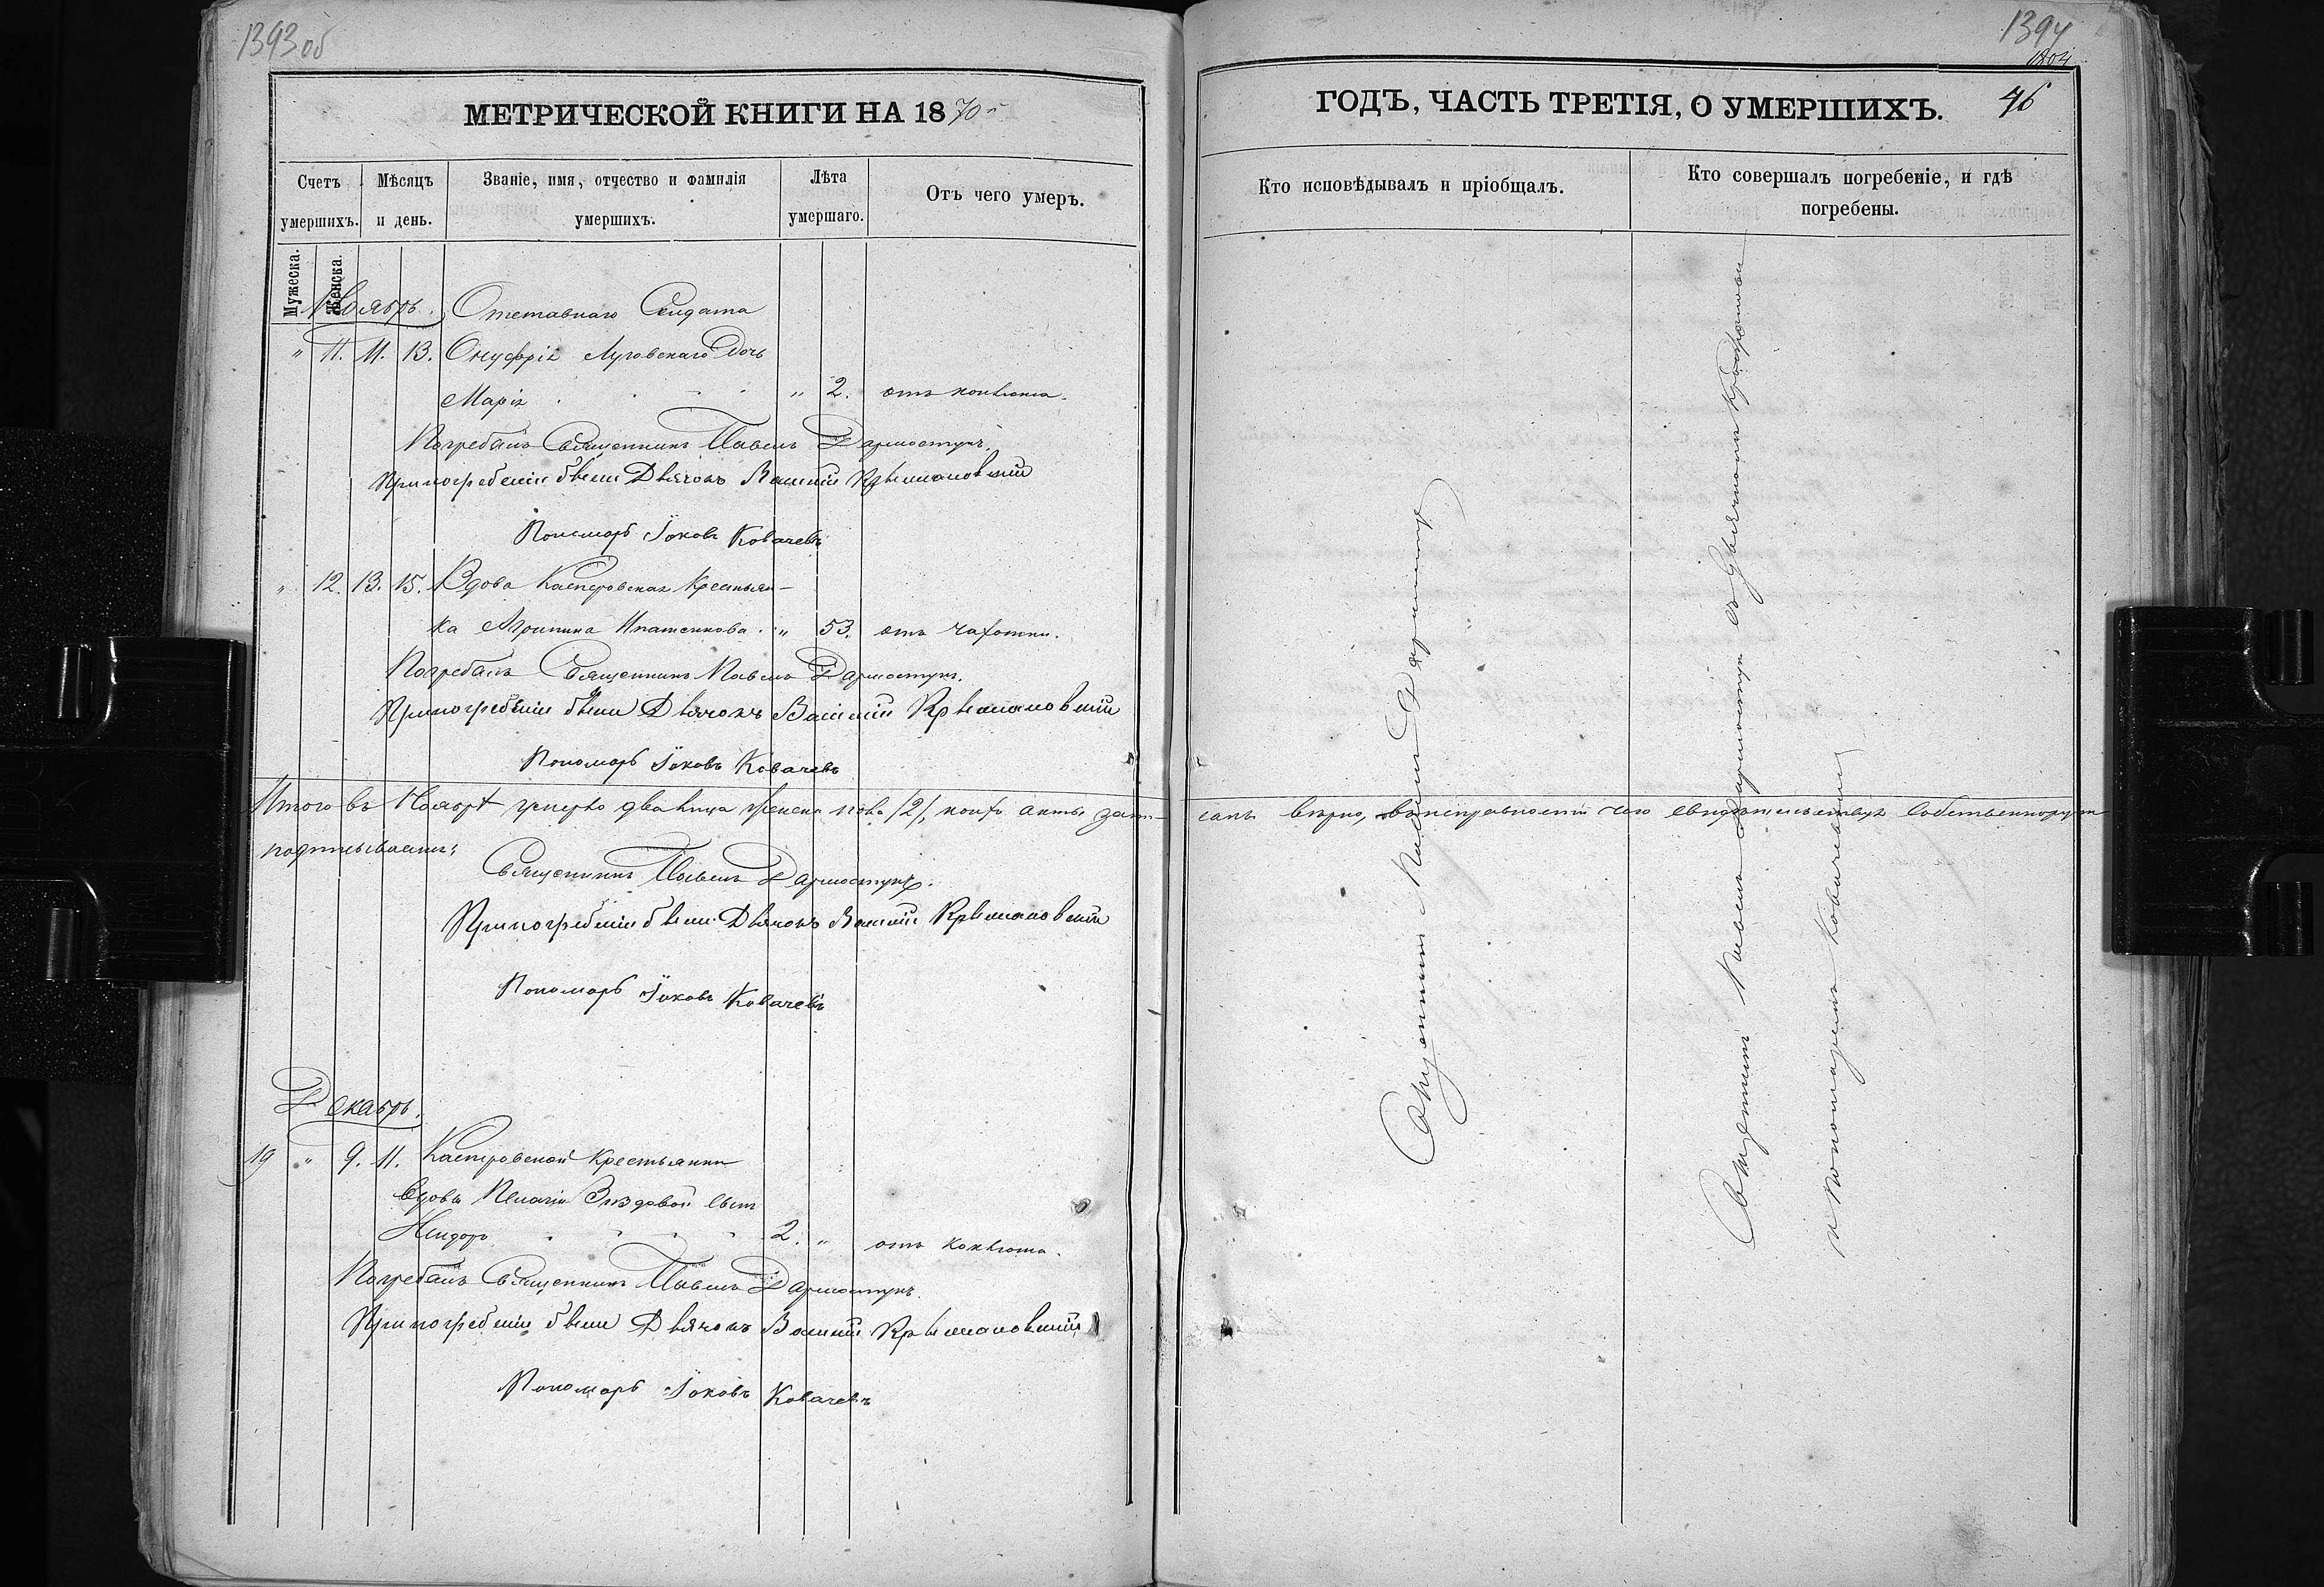 1393 об
МЕТРИЧЕСКОЙ КНИГИ НА 1870
Счетъ умершихъ.
Мѣсяцъ и день.
Званіе, имя, отчество и фамилія умершихъ.
Лѣта умершаго.
Отъ чего умеръ.
Мужеска.
Женска.
Ноябрь. Отставнаго Солдата
" 11. 11. 13. Онуфрія Луговскаго дочь
Марія " 2. отъ коклюша.
Погребалъ Священникъ Павелъ Дармостукъ.
При погребеніи были Дьячокъ Василій
Пономарь Іаковъ Ковачевъ
" 12. 13. 15. Вдова Касперовская Крестьян-
ка Агрипина Игнатенкова " 53. отъ чахотки.
Погребалъ Священникъ Павелъ Дармостукъ.
При погребеніи были Дьячокъ Василій
Пономарь Іаковъ Ковачевъ
Итого въ Ноябрѣ умерло два лица женска пола /2/, коихъ акты запи-
подписываемъ:
Священникъ Павелъ Дармостукъ.
При погребеніи были Дьячокъ Василій
Пономарь Іаковъ Ковачевъ
Декабрь.
19 " 9. 11. Касперовской Крестьянки
Вдовы Пелагіи сынъ
2. " отъ коклюша.
Погребалъ Священникъ Павелъ Дармостукъ.
При погребеніи были Дьячокъ Василій
Пономарь Іаковъ Ковачевъ
1394
1804
ГОДЪ, ЧАСТЬ ТРЕТІЯ, О УМЕРШИХЪ. 46
Кто исповѣдывалъ и пріобщалъ.
Кто совершалъ погребеніе, и гдѣ погребены.
Священникъ Павелъ Дармостукъ
Священникъ Павелъ Дармостукъ съ Дьячкомъ
и Пономаремъ Ковачевымъ
санъ вѣрно, въ исправности чего свидѣтельствуя собственноручно